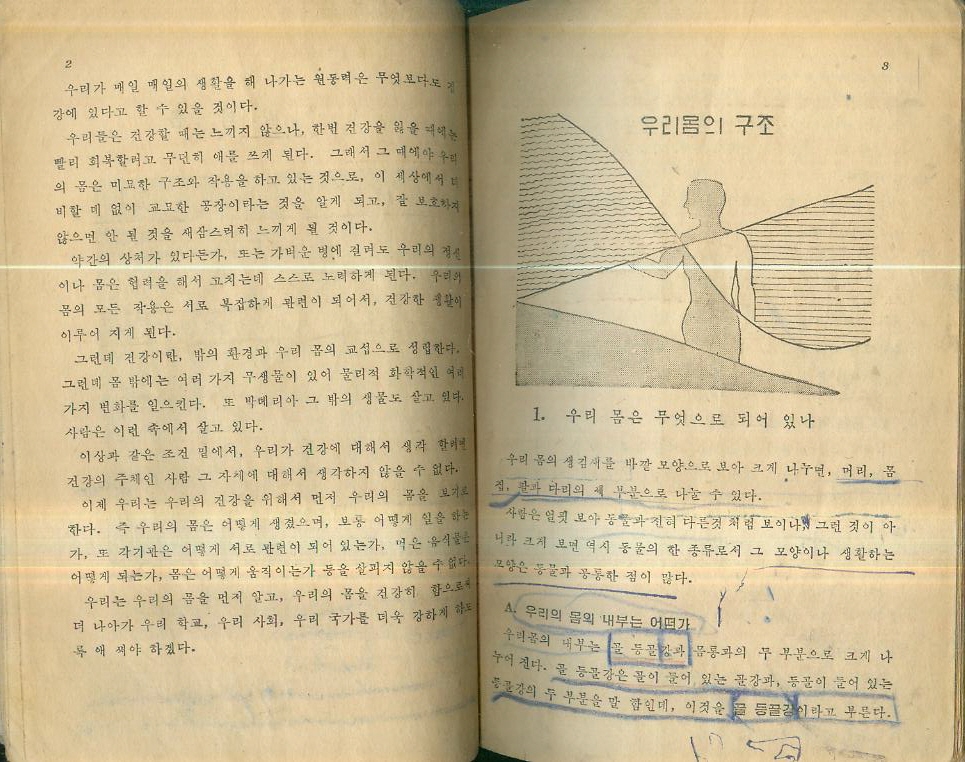 2
우리가 매일 매일의 생활을 해 나가는 원동력은 무엇보다도 건
강에 있다고 할 수 있을 것이다.
우리들은 건강할 때는 느끼지 않으나, 한번 건강을 잃을 때에는
빨리 회복할려고 무던히 애를 쓰게 된다. 그래서 그 때에야 우리
의 몸은 미묘한 구조와 작용을 하고 있는 것으로, 이 세상에서 더
비할 데 없이 교묘한 공장이라는 것을 알게 되고, 잘 보호하지
않으면 안 될 것을 새삼스러히 느끼게 될 것이다.
약간의 상처가 있다든가, 또는 가벼운 병에 걸려도 우리의 정신
이나 몸은 협력을 해서 고치는데 스스로 노력하게 된다. 우리의
몸의 모든 작용은 서로 복잡하게 관련이 되어서, 건강한 생활이
이루어 지게 된다.
그런데 건강이란, 밖의 환경과 우리 몸의 교섭으로 성립한다.
그런데 몸 밖에는 여러 가지 무생물이 있어 물리적 화학적인 여러
가지 변화를 일으킨다. 또 박테리아 그 밖의 생물도 살고 있다.
사람은 이런 속에서 살고 있다.
이상과 같은 조건 밑에서, 우리가 건강에 대해서 생각 할려면
건강의 주체인 사람 그 자체에 대해서 생각하지 않을 수 없다.
이제 우리는 우리의 건강을 위해서 먼저 우리의 몸을 보기로
한다. 즉 우리의 몸은 어떻게 생겼으며, 보통 어떻게 일을 하는
가, 또 각기관은 어떻게 서로 관련이 되어 있는가, 먹은 음식물은
어떻게 되는가, 몸은 어떻게 움직이는가 등을 살피지 않을 수 없다.
우리는 우리의 몸을 먼저 알고, 우리의 몸을 건강히 함으로써
더 나아가 우리 학교, 우리 사회, 우리 국가를 더욱 강하게 하도
록 애 써야 하겠다.
3
우리몸의 구조
1. 우리 몸은 무엇으로 되어 있나
우리 몸의 생김새를 바깥 모양으로 보아 크게 나누면, 머리, 몸
집, 팔과 다리의 세 부분으로 나눌 수 있다.
사람은 얼핏 보아 동물과 전혀 다른것 처럼 보이나, 그런 것이 아
니라 크게 보면 역시 동물의 한 종류로서 그 모양이나 생활하는
모양은 동물과 공통한 점이 많다.
A. 우리의 몸의 내부는 어떤가
우리몸의 내부는 골 등골강과 몸통과의 두 부분으로 크게 나
누어 진다. 골 등골강은 골이 들어 있는 골강과, 등골이 들어 있는
등골강의 두 부분을 말 함인데, 이것을 골 등골강이라고 부른다.